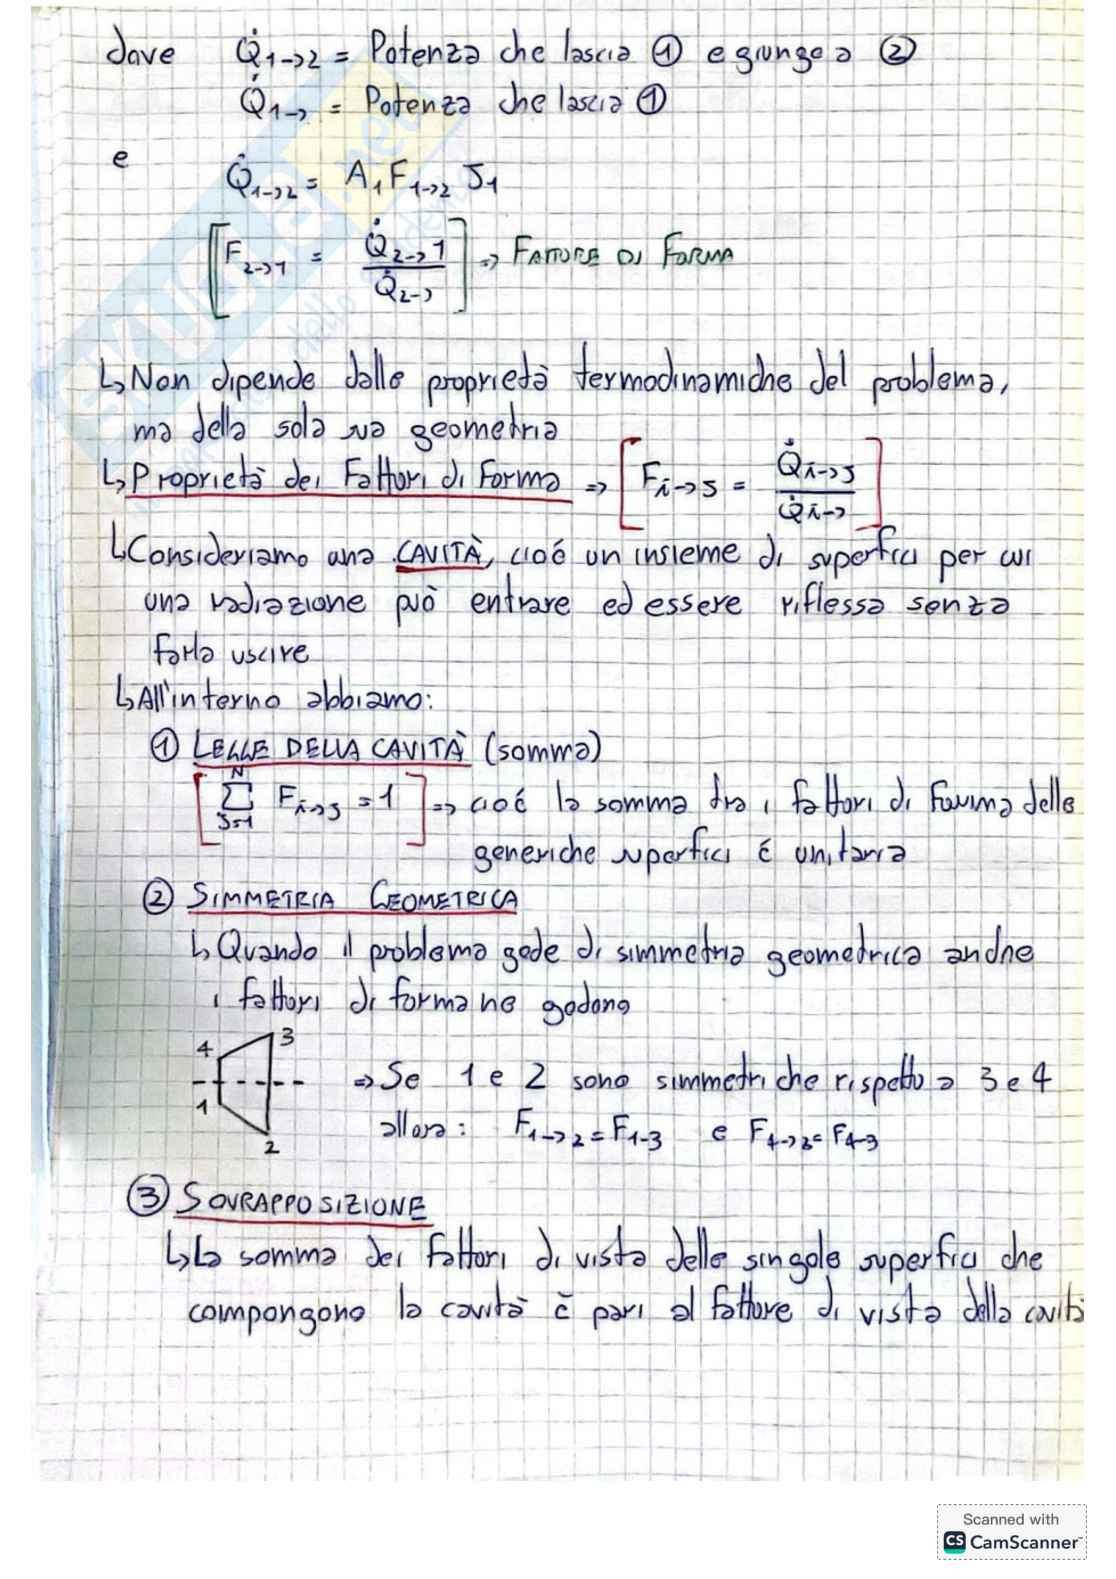 dove Q̇1→2 = Potenza che lascia ① e giunge a ②
Q̇1→ = Potenza che lascia ①
e
Q̇1→2 = A1 F1→2 J1
[F2→1 = Q̇2→1 / Q̇2→] => FATTORE DI FORMA
↳ Non dipende dalle proprietà termodinamiche del problema,
ma della sola sua geometria
↳ Proprietà dei Fattori di Forma => [Fi→J = Q̇i→J / Q̇i→]
↳ Consideriamo una CAVITÀ, cioé un insieme di superfici per cui
una radiazione può entrare ed essere riflessa senza
farla uscire
↳ All'interno abbiamo:
① LEGGE DELLA CAVITÀ (somma)
[∑ J=1 N Fi→J = 1] => cioé la somma tra i fattori di forma delle
generiche superfici é unitaria
② SIMMETRIA GEOMETRICA
↳ Quando il problema gode di simmetria geometrica anche
i fattori di forma ne godono
4 3
1 2
=> Se 1 e 2 sono simmetriche rispetto a 3 e 4
allora: F1→2 = F1-3 e F4→2 = F4-3
③ SOVRAPPOSIZIONE
↳ La somma dei fattori di vista delle singole superfici che
compongono la cavità è pari al fattore di vista della cavità
Scanned with
CS CamScanner